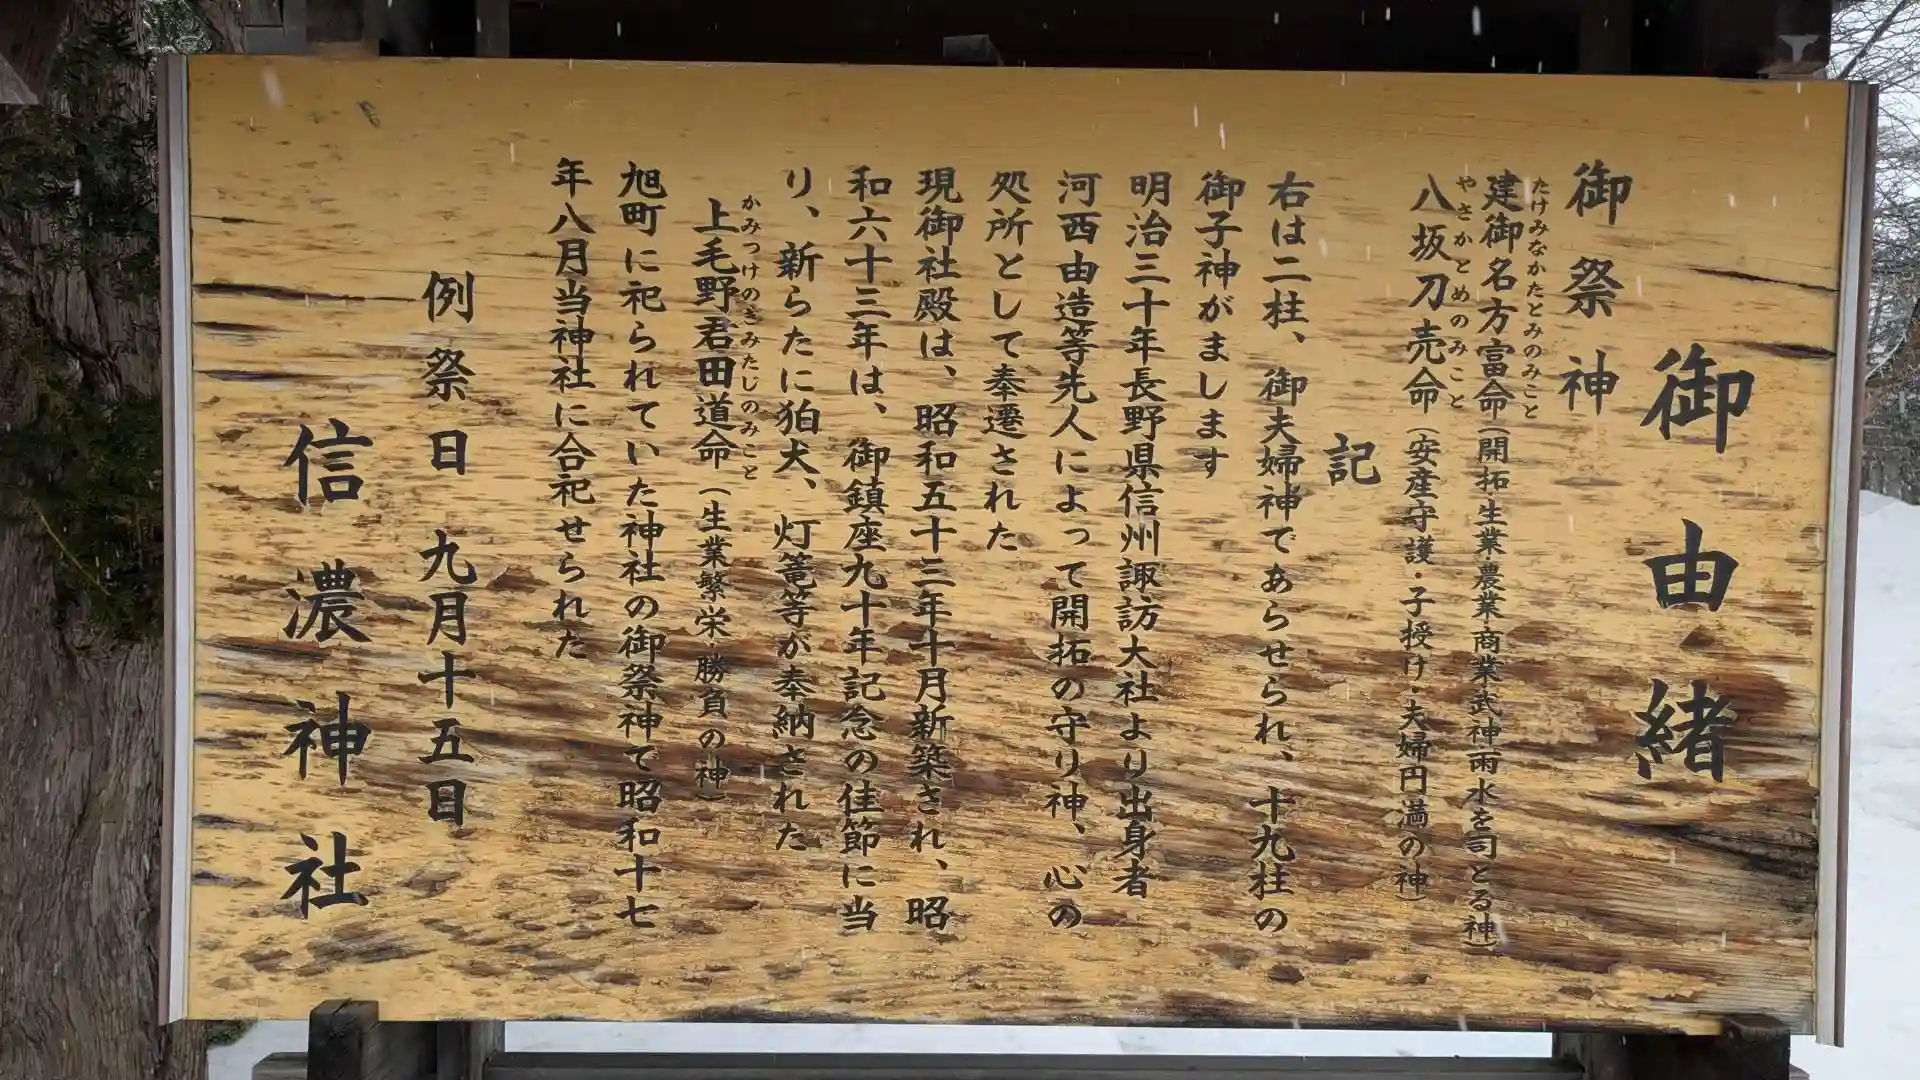 御由緒
御祭神
建御名方富命(開拓・生業・農業・商業・武神・雨水を司とる神)
たけみなかたとみのみこと
八坂刀売命(安産守護・子授け・夫婦円満の神)
やさかとめのみこと
記
右は二柱、御夫婦神であらせられ、十九柱の
御子神がまします
明治三十年長野県信州諏訪大社より出身者
河西由造等先人によって開拓の守り神、心の
処所として奉遷された
現御社殿は、昭和五十三年十月新築され、昭
和六十三年は、御鎮座九十年記念の佳節に当
り、新らたに狛犬、灯篭等が奉納された
上毛野君田道命(生業繁栄・勝負の神)
かみつけのきみたじのみこと
旭町に祀られていた神社の御祭神で昭和十七
年八月当神社に合祀せられた
例祭日 九月十五日
信濃神社